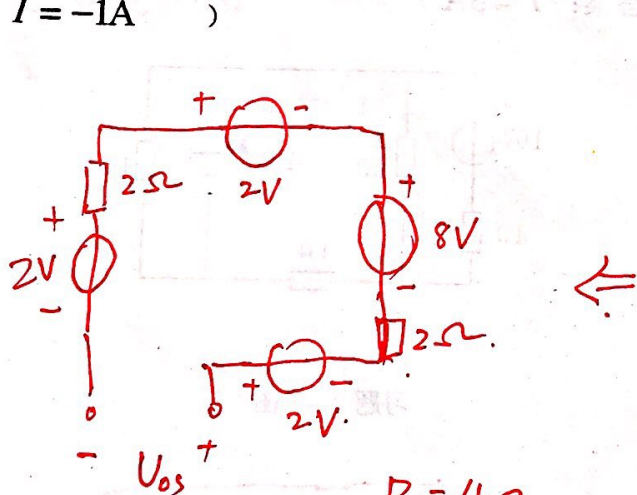 I = −1A )
+ -
2Ω 2V
+
+
2V
8V
-
-
2Ω.
+ -
2V.
- U₀ₛ +